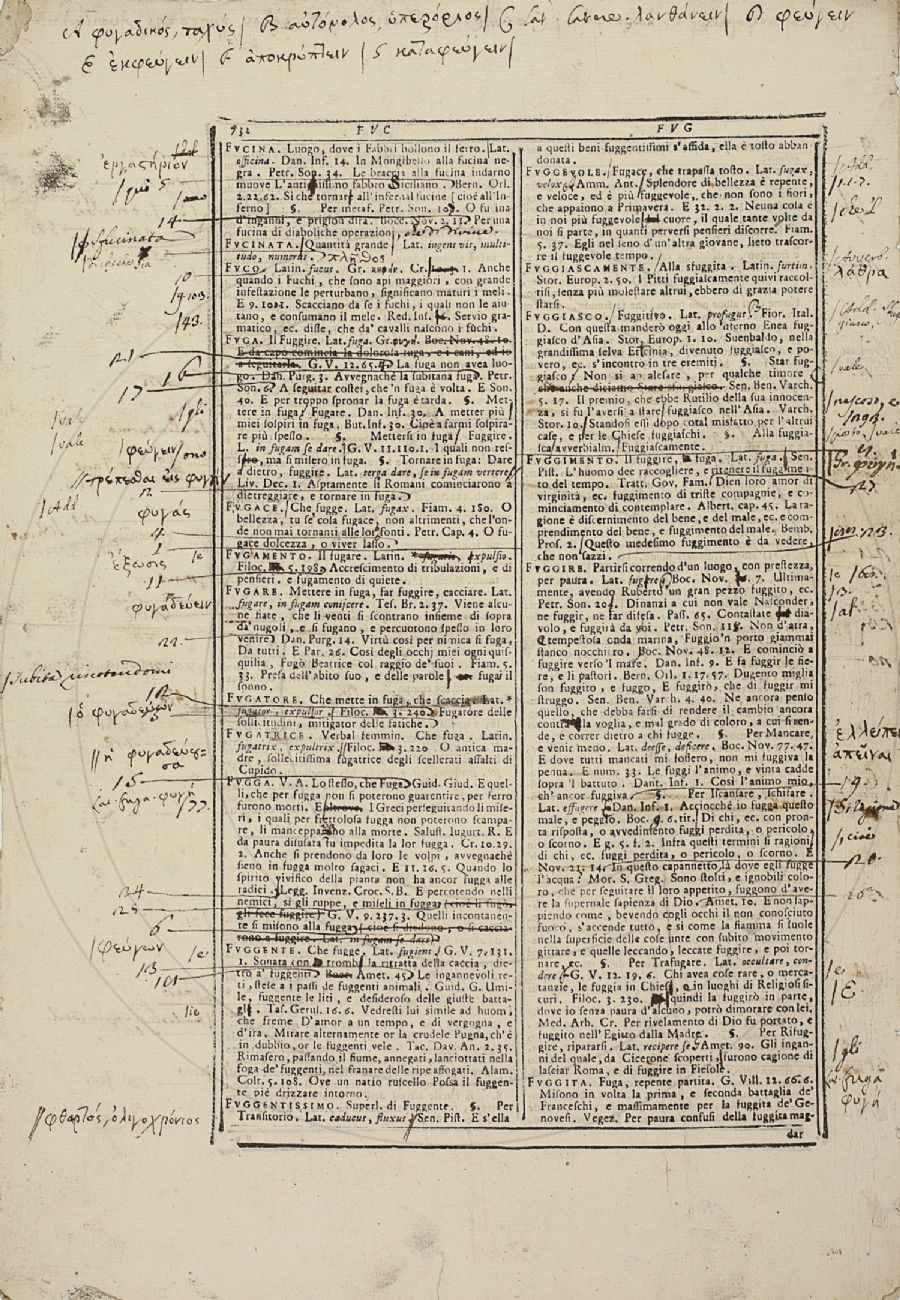 A φυγαδικός, ταχύς / B αὐτόμολος, ὑπερόριος / C Lat. λανθάνειν / D φεύγειν
E ἐκφεύγειν / F ἀποκρύπτειν / G καταφεύγειν /
732 FVC FVG
FVCINA. Luogo, dove i Fabbri bollono il ferro. Lat.
officina. Dan. Inf. 14. In Mongibello alla fucina ne-
gra. Petr. Son. 34. Le braccia alla fucina indarno
muove L'antichissimo fabbro Siciliano. Bern. Orl.
2.22.62. Sì che tornar all'infernal fucina [cioè all'In-
ferno] §. Per metaf. Petr. Son. 107. O fucina
d'inganni, e prigion dira. Bocc. Nov. 2. 11. Per una
fucina di diaboliche operazioni
FVCINATA. Quantità grande. Lat. ingens vis, multi-
tudo, numerus. πλῆθος
FVCO. Latin. fucus. Gr. Cr. 1. Anche
quando i Fuchi, che sono api maggiori, con grande
infestazione le perturbano, significano maturi i meli.
E 9. 102. Scacciano da se i fuchi, i quali non le aiu-
tano, e consumano il mele. Red. Inf. Servio gra-
matico, ec. disse, che da' cavalli nascono i fuchi.
FVGA. Il Fuggire. Lat. fuga. Gr. φυγή. Bocc. Nov. 48. 10.
E da capo comincia la dolorosa fuga, e i cani, ed io
a seguitarla. G. V. 12. 65. 4. La fuga non avea luo-
go. Dan. Purg. 3. Avvegnachè la subitana fuga. Petr.
Son. 6. A seguitar costei, che 'n fuga è volta. E Son.
40. E per troppo spronar la fuga è tarda. §. Met-
tere in fuga / Fugare. Dan. Inf. 30. A metter più /
miei sospiri in fuga, But. Inf. 30. Cioè a farmi sospira-
re più spesso. §. Mettersi in fuga / Fuggire.
L. in fugam se dare. G. V. 11. 110. 1. I quali non res-
sero, ma si misero in fuga. §. Tornare in fuga: Dare
a dietro, fuggire. Lat. terga dare, se in fugam vertere
Liv. Dec. 1. Aspramente li Romani cominciarono a
dietreggiare, e tornare in fuga.
FVGACE. Che fugge. Lat. fugax. Fiam. 4. 180. O
bellezza, tu se' cosa fugace, non altrimenti, che l'on-
de non mai tornanti alle lor fonti. Petr. Cap. 4. O fu-
gace dolcezza, o viver lasso.
FVGAMENTO. Il fugare. Latin. expulsio.
Filoc. 5. 198. Accrescimento di tribulazioni, e di
pensieri, e fugamento di quiete.
FVGARE. Mettere in fuga, far fuggire, cacciare. Lat.
fugare, in fugam conijcere. Tes. Br. 2. 37. Viene alcu-
ne fiate, che li venti si scontrano insieme di sopra
da' nugoli, e si fugano, e percuotono spesso in loro
venire. Dan. Purg. 14. Virtù così per nimica si fuga,
Da tutti. E Par. 26. Così degli occhj miei ogni qui-
squilia, Fugò Beatrice col raggio de' suoi. Fiam. 5.
33. Presa dell'abito suo, e delle parole fugai il
sonno.
FVGATORE. Che mette in fuga, che scaccia. Lat.
fugator, expulsor. Filoc. 3. 240. Fugatore delle
sollicitudini, mitigator delle fatiche.
FVGATRICE. Verbal femmin. Che fuga. Latin.
fugatrix, expultrix. Filoc. 3. 220 O antica ma-
dre, sollecitissima fugatrice degli scellerati assalti di
Cupido.
FVGGA. V. A. Lo stesso, che Fuga. Guid. Giud. E quel-
li, che per fugga non si poterono guarentire, per ferro
furono morti. I Greci perseguitando li mise-
ri, i quali per frettolosa fugga non poterono scampa-
re, li manceppano alla morte. Salust. Iugurt. R. E
da paura difusata fu impedita la lor fugga. Cr. 10. 29.
2. Anche si prendono da loro le volpi, avvegnachè
sieno in fugga molto sagaci. E 11. 16. 5. Quando lo
spirito vivifico della pianta non ha ancor fugga alle
radici. Legg. Invenz. Croc. S. B. E percotendo nelli
nemici, sì gli ruppe, e miseli in fugga (cioè li fugò,
gli fece fuggire) G. V. 9. 237. 3. Quelli incontanen-
te si misono alla fugga (cioè si diedono, o si caccia-
rono a fuggire. Lat. in fugam se dare)
FVGGENTE. Che fugge. Lat. fugiens. G. V. 7. 131.
1. Sonata con tromba la ritratta della caccia, die-
tro a' fuggenti. Bocc. Amet. 45. Le ingannevoli re-
ti, stese a i passi de fuggenti animali. Guid. G. Umi-
le, fuggente le liti, e desideroso delle giuste batta-
glie. Tas. Gerul. 16. 6. Vedresti lui simile ad huom,
che freme D'amor a un tempo, e di vergogna, e
d'ira, Mirare alternamente or la crudele Pugna, ch'è
in dubbio, or le fuggenti vele. Tac. Dav. An. 2. 35.
Rimasero, passando il fiume, annegati, lanciottati nella
foga de' fuggenti, nel franare delle ripe affogati. Alam.
Colt. 5. 108. Ove un natio ruscello Possa il fuggen-
te piè drizzare intorno.
FVGGENTISSIMO. Superl. di Fuggente. §. Per
Transitorio, Lat. caducus, fluxus. Sen. Pist. E s'ella
a questi beni fuggentissimi s'affida, ella è tosto abban-
donata.
FVGGEVOLE. Fugace, che trapassa tosto. Lat. fugax,
velox. Amm. Ant. Splendore di bellezza è repente,
e veloce, ed è più fuggevole, che non sono i fiori,
che appaiono a Primavera. E 32. 2. 2. Neuna cosa è
in noi più fuggevole, cuore, il quale tante volte da
noi si parte, in quanti perversi pensieri discorre. Fiam.
5. 37. Egli nel seno d'un'altra giovane, lieto trascor-
re il fuggevole tempo.
FVGGIASCAMENTE. Alla sfuggita. Latin. furtim.
Stor. Europ. 2. 50. I Pitti fuggiascamente quivi raccol-
tisi, senza più molestare altrui, ebbero di grazia potere
starsi.
FVGGIASCO. Fuggitivo. Lat. profugus. Fior. Ital.
D. Con questa manderò oggi allo 'nferno Enea fug-
giasco d'Asia. Stor. Europ. 1. 10. Suenbaldo, nella
grandissima selva Ercinia, divenuto fuggiasco, e po-
vero, ec. s'incontrò in tre eremiti. §. Star fug-
giasco / Non si appalesare, per qualche timore
che anche diciamo Stare stugiasco. Sen. Ben. Varch.
5. 17. Il premio, che ebbe Rutilio della sua innocen-
za, si fu l'aversi a stare fuggiasco nell'Asia. Varch.
Stor. 10. Standosi essi dopo cotal misfatto per l'altrui
case, e per le Chiese fuggiaschi. §. Alla fuggia-
sca / avverbialm. / Fuggiascamente.
FVGGIMENTO. Il fuggire, fuga. Lat. fuga. Sen.
Pist. L'huomo dee raccogliere, e ritenere il fuggimen-
to del tempo. Tratt. Gov. Fam. Dien loro amor di
virginità, ec. fuggimento di triste compagnie, e co-
minciamento di contemplare. Albert. cap. 45. La ra-
gione è discernimento del bene, e del male, ec. e com-
prendimento del bene, e fuggimento del male. Bemb.
Pros. 2. Questo medesimo fuggimento è da vedere,
che non sazzi.
FVGGIRE. Partirsi correndo d'un luogo, con prestezza,
per paura. Lat. fugere. Boc. Nov. 7. Ultima-
mente, avendo Ruberto un gran pezzo fuggito, ec.
Petr. Son. 204. Dinanzi a cui non vale Nasconder,
ne fuggir, ne far difesa. Pass. 65. Contastate dia-
volo, e fuggirà da voi. Petr. Son. 115. Non d'atra,
e tempestosa onda marina, Fuggìo 'n porto giammai
stanco nocchiero. Boc. Nov. 48. 12. E cominciò a
fuggire verso 'l mare. Dan. Inf. 9. E fa fuggir le fie-
re, e li pastori. Bern. Orl. 1. 17. 57. Dugento miglia
son fuggito, e fuggo, E fuggirò, che di fuggir mi
struggo. Sen. Ben. Varch. 4. 40. Ne ancora penso
quello, che debba farsi di rendere il cambio ancora
contra voglia, e mal grado di coloro, a cui si ren-
de, e correr dietro a chi fugge. §. Per Mancare,
e venir meno. Lat. deesse, deficere. Boc. Nov. 77. 47.
E dove tutti mancati mi fossero, non mi fuggiva la
penna. E num. 33. Le fuggì l'animo, e vinta cadde
sopra 'l battuto. Dant. Inf. 2. Così l'animo mio,
ch'ancor fuggiva. §. Per Iscansare, schifare.
Lat. effugere. Dan. Inf. 1. Acciocchè io fugga questo
male, e peggio. Boc. g. 6. tit. Di chi, ec. con pron-
ta risposta, o avvedimento fuggì perdita, o pericolo,
o scorno. E g. 5. f. 2. Infra questi termini si ragioni
di chi, ec. fuggì perdita, o pericolo, o scorno. E
Nov. 23. 14. In questo capannetto, là dove egli fugge
l'acqua? Mor. S. Greg. Sono stolti, e ignobili colo-
ro, che per seguitare il loro appetito, fuggono d'ave-
re la supernale sapienza di Dio. Amet. 10. E non sap-
piendo come, bevendo cogli occhi il non conosciuto
fuoco, s'accende tutto, e si come la fiamma si suole
nella superficie delle cose unte con subito movimento
gittare, e quelle leccando, leccate fuggire, e poi tor-
nare, ec. §. Per Trafugare. Lat. occultare, con-
dere. G. V. 12. 19. 6. Chi avea cose rare, o merca-
tanzie, le fuggia in Chiese, e in luoghi di Religiosi si-
curi. Filoc. 3. 230. quindi la fuggirò in parte,
dove io senza paura d'alcuno, potrò dimorare con lei.
Med. Arb. Cr. Per rivelamento di Dio fu portato, e
fuggito nell'Egitto dalla Madre. §. Per Rifug-
gire, ripararsi. Lat. recipere se. Amet. 90. Gli ingan-
ni del quale, da Cicerone scoperti, furono cagione di
lasciar Roma, e di fuggire in Fiesole.
FVGGITA. Fuga, repente partita. G. Vill. 12. 66. 6.
Misono in volta la prima, e seconda battaglia de'
Franceschi, e massimamente per la fuggita de' Ge-
novesi. Vegez. Per paura confusi della fuggita mag-
dar
ἐργαστήριον
14
fucinata
10
143.
21
16
17
/vale
/vale
/gli
φεύγειν
τρέπεσθαι εἰς φυγὴν
/Add
φυγάς
ἐξωσις
11
φυγαδεύειν
22
subita riscotendomi
ὁ φυγαδεύων
// ἡ φυγαδεύου-
σα
15
Lat. fuga. φυγή
24
25
6
/φεύγων
13
101
// φθαρτός, ὀλιγοχρόνιος
λάθρα
/vale
/nascoso, e
27
ἐλλείπει
ἀπεῖναι
19
/cioè
20
/E
/gli
Lat. fuga
φυγή